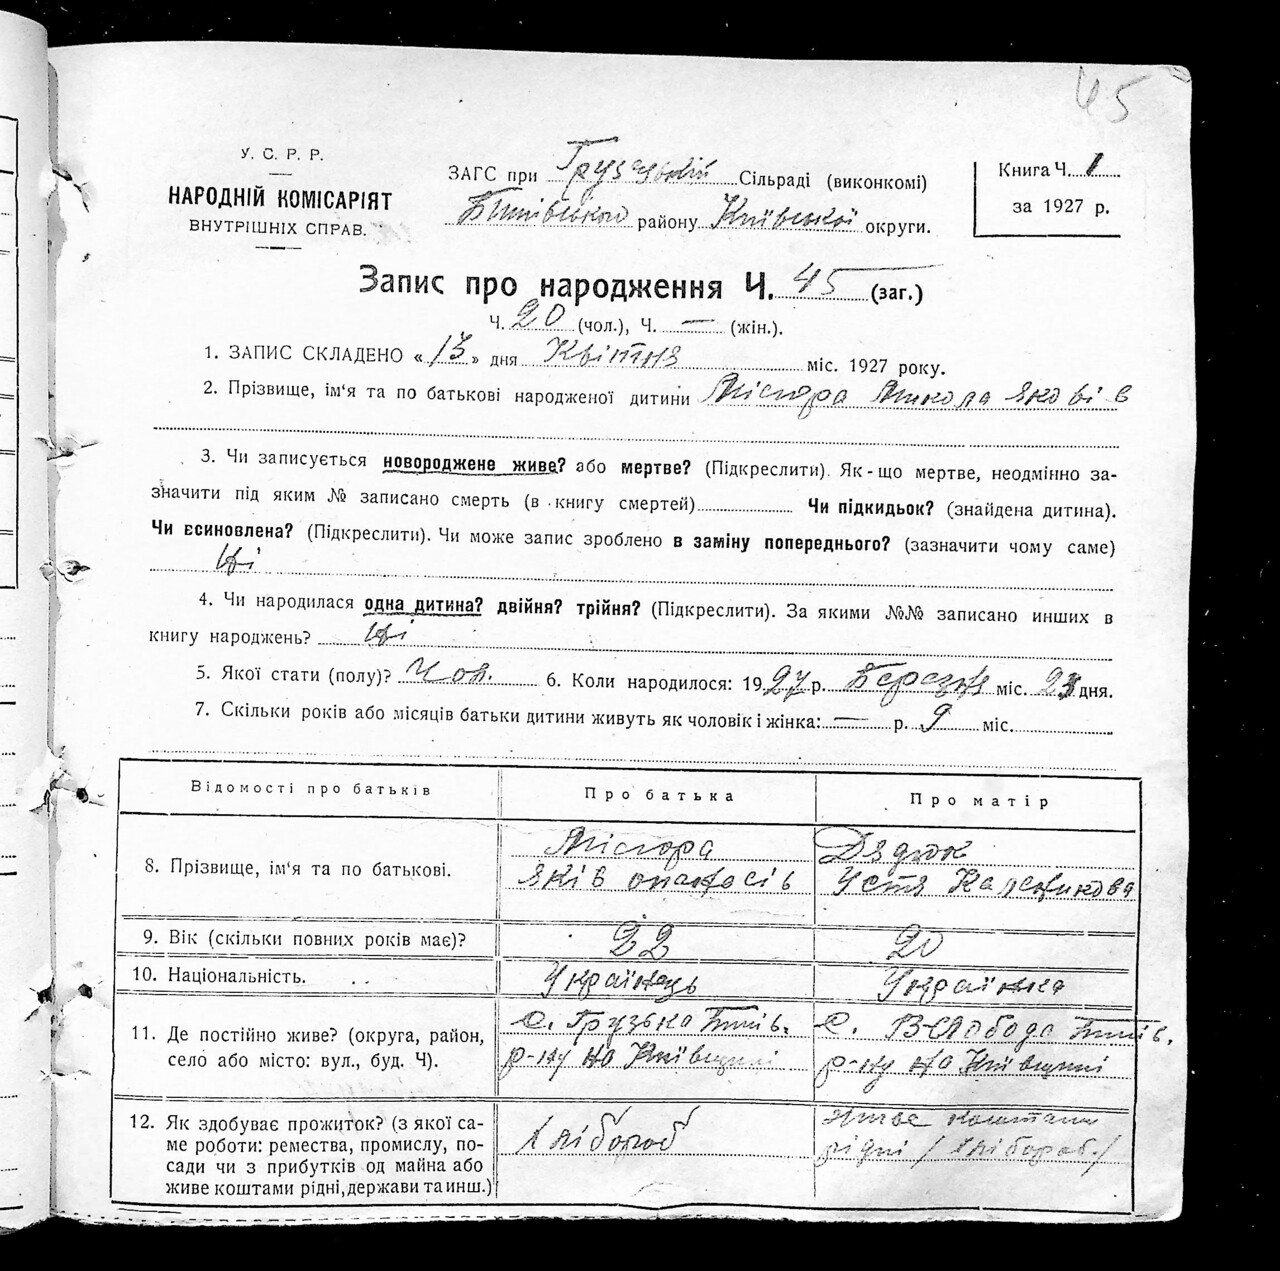 45
У. С. Р. Р.
НАРОДНІЙ КОМІСАРІЯТ
ВНУТРІШНІХ СПРАВ.
ЗАГС при Грузчській Сільраді (виконкомі)
району Київської округи.
Книга Ч. 1
за 1927 р.
Запис про народження Ч. 45 (заг.)
Ч. 20 (чол.), Ч. — (жін.).
1. ЗАПИС СКЛАДЕНО « 13 » дня Квітня міс. 1927 року.
2. Прізвище, ім‘я та по батькові народженої дитини Місюра Микола Яковів
3. Чи записується новороджене живе? або мертве? (Підкреслити). Як-що мертве, неодмінно за-
значити під яким № записано смерть (в книгу смертей) Чи підкидьок? (знайдена дитина).
Чи всиновлена? (Підкреслити). Чи може запис зроблено в заміну попереднього? (зазначити чому саме)
Ні
4. Чи народилася одна дитина? двійня? трійня? (Підкреслити). За якими №№ записано инших в
книгу народжень? Ні
5. Якої стати (полу)? Чол. 6. Коли народилося: 1927 р. Березня міс. дня.
7. Скільки років або місяців батьки дитини живуть як чоловік і жінка: — р. 9 міс.
Відомості про батьків
Про батька
Про матір
8. Прізвище, ім‘я та по батькові.
Місюра
Яків опанасів
Дядюк
Устя
9. Вік (скільки повних років має)?
22
20
10. Національність.
Українець
Українка
11. Де постійно живе? (округа, район,
село або місто: вул., буд. Ч).
с. Грузька
р-ну на Київщині
с. В-Слобода
р-ну на Київщині
12. Як здобуває прожиток? (з якої са-
ме роботи: ремества, промислу, по-
сади чи з прибутків од майна або
живе коштами рідні, держави та инш.)
Хлібороб
живе коштами
рідні / хлібороб. /